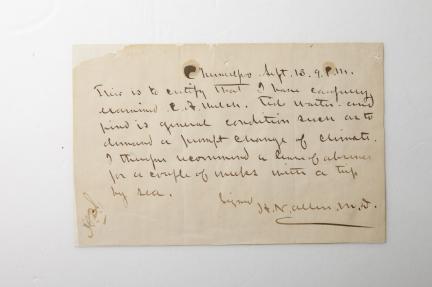 Chemulpo Sept. 13. 9 P.M.
This is to certify that I have carefully
examined C. F. Welch. and
find is general condition such as to
demand a prompt change of climate.
I therefore recommend a leave of absence
for a couple of weeks with a trip
by sea.
Signed
H. N. Allen, M.D.